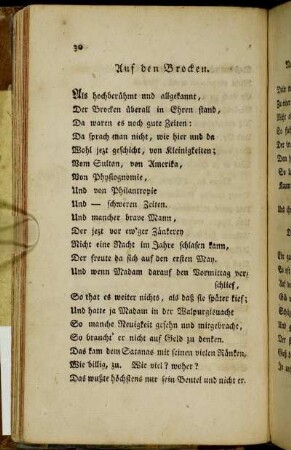 30
Auf den Brocken.
Als hochberühmt und allgekannt,
Der Brocken überall in Ehren stand,
Da waren es noch gute Zeiten:
Da sprach man nicht, wie hier und da
Wohl jezt geschicht, von Kleinigkeiten;
Vom Sultan, von Amerika,
Von Physiognomie,
Und von Philantropie
Und — schweren Zeiten.
Und mancher brave Mann,
Der jezt vor ew'ger Zänkerey
Nicht eine Nacht im Jahre schlafen kann,
Der freute da sich auf den ersten May.
Und wenn Madam darauf den Vormittag ver-
schlief,
So that es weiter nichts, als daß sie später rief;
Und hatte ja Madam in der Walpurgisnacht
So manche Neuigkeit gesehn und mitgebracht,
So braucht' er nicht auf Geld zu denken.
Das kam dem Satanas mit seinen vielen Ränken,
Wie billig, zu. Wie viel? woher?
Das wußte höchstens nur sein Beutel und nicht er.